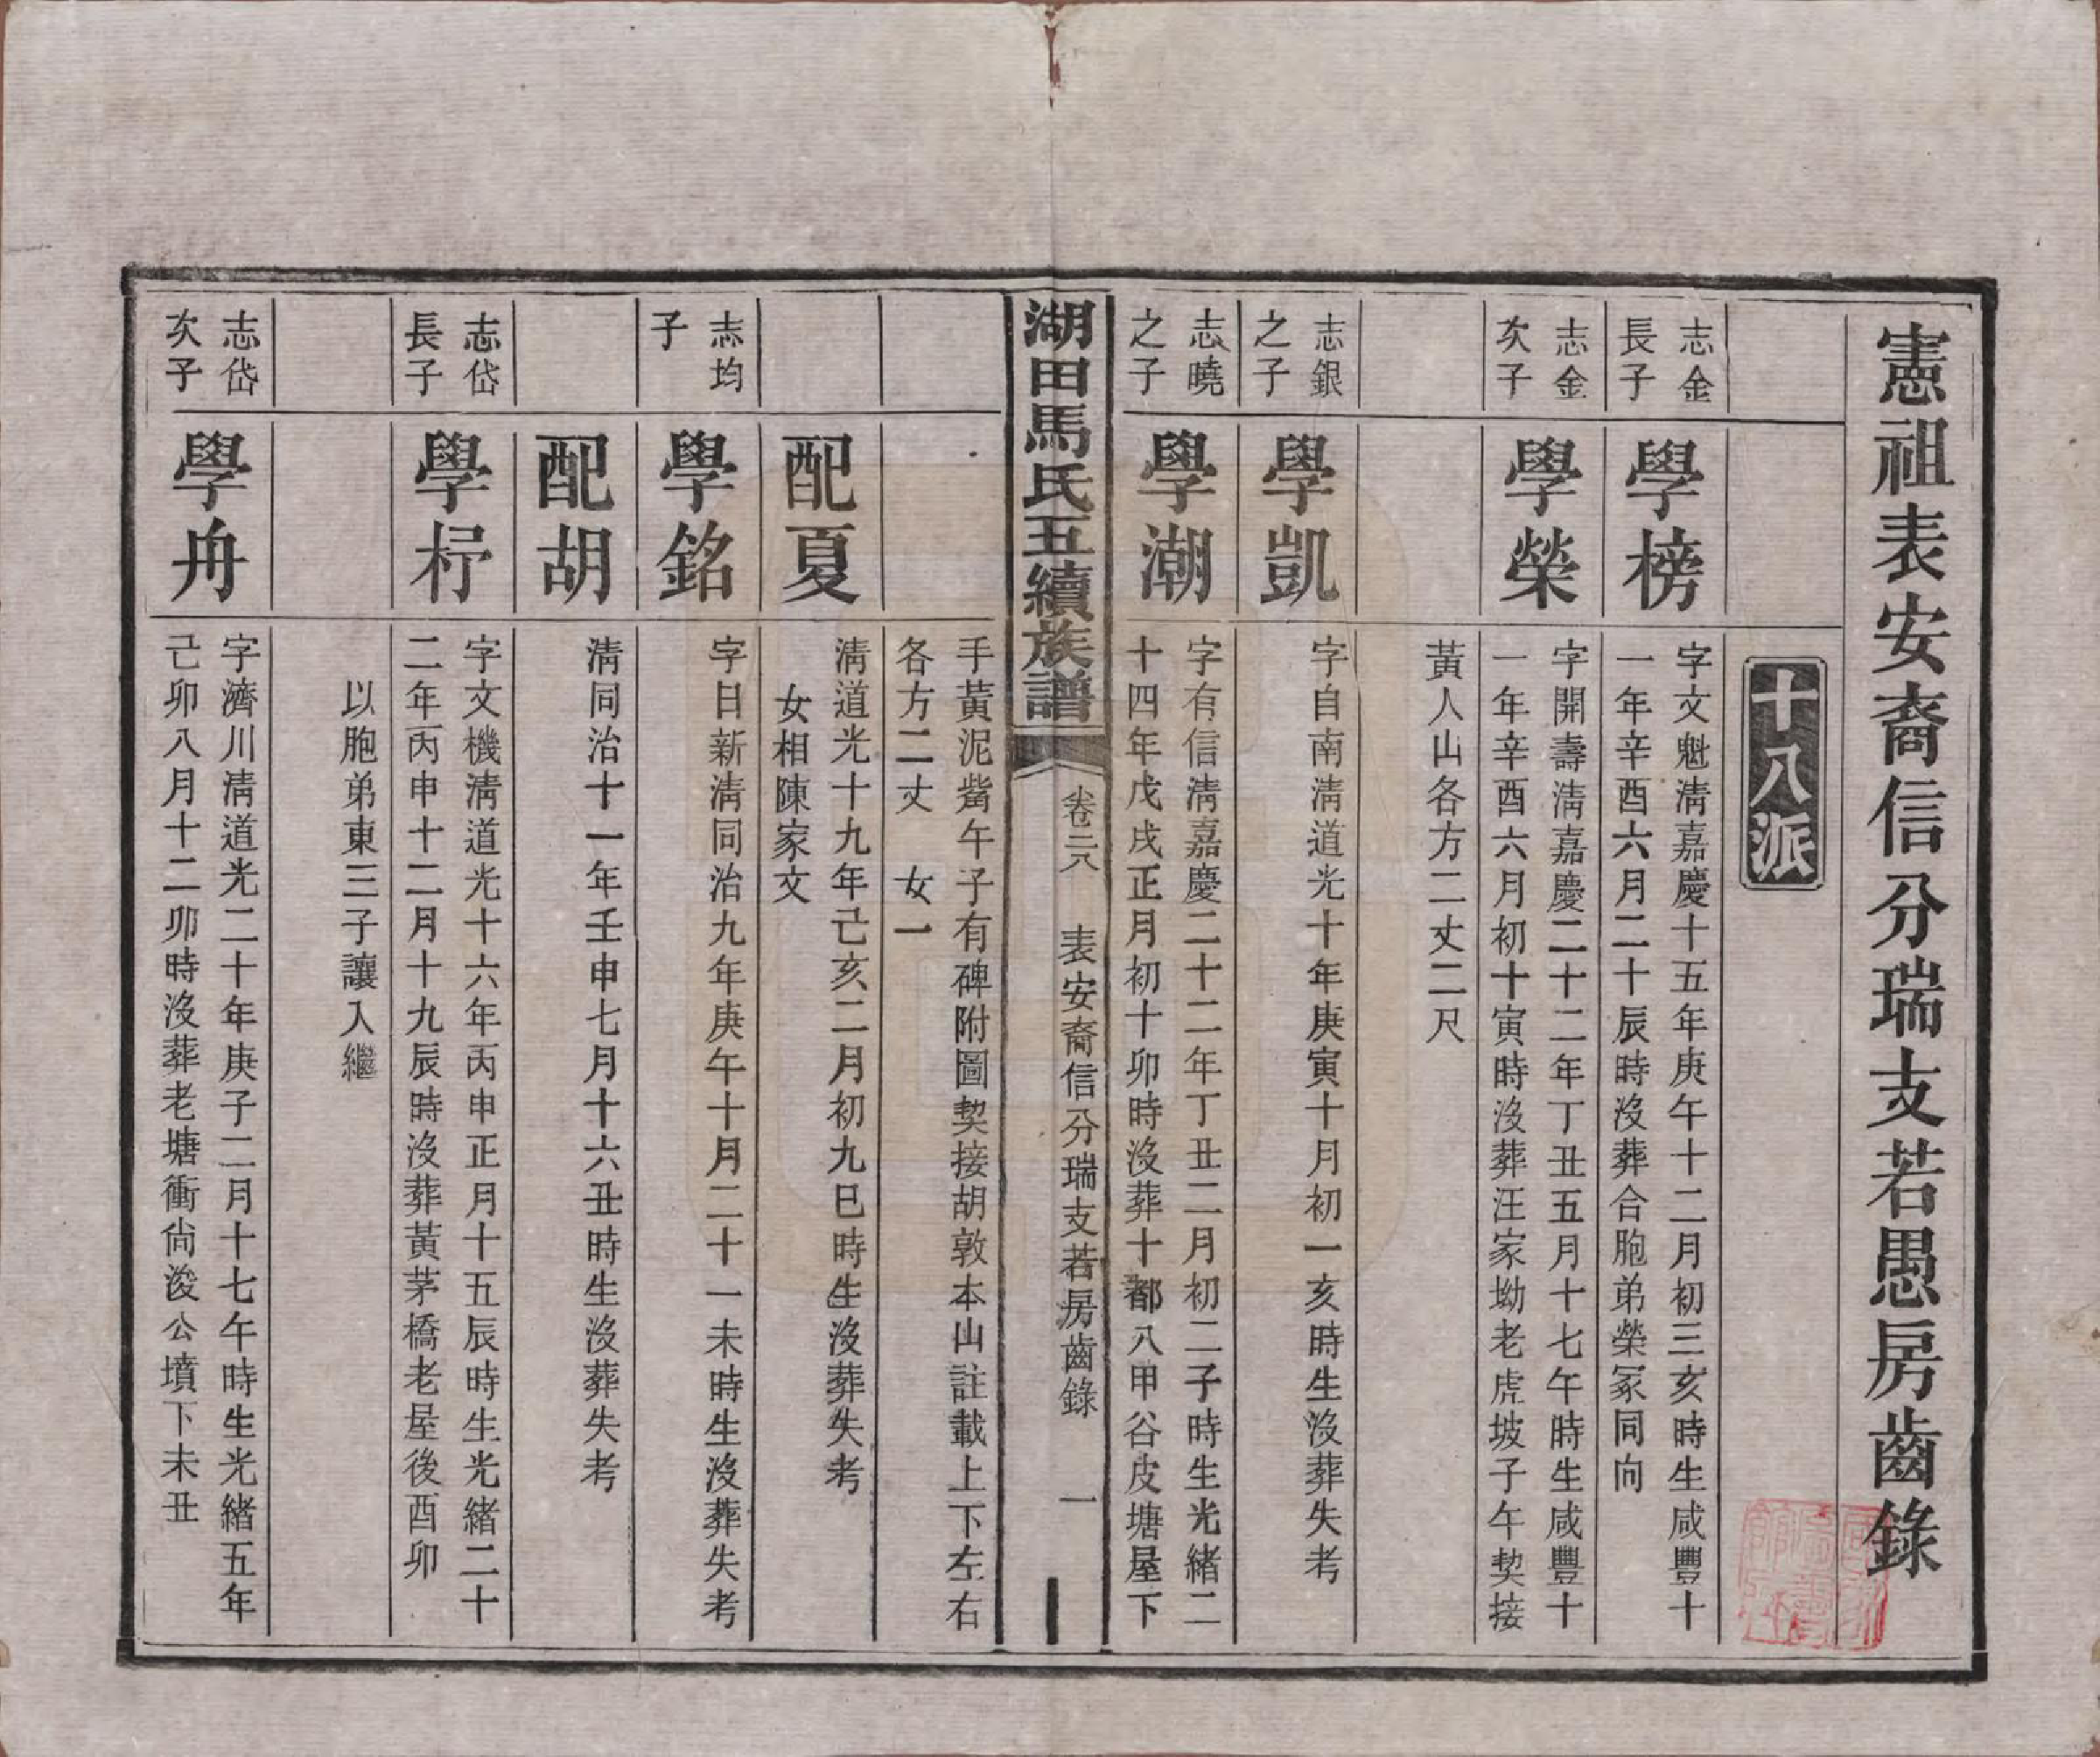 憲祖表安裔信分瑞支若愚房齒錄
十八派
志金
長子
學榜
字文魁清嘉慶十五年庚午十二月初三亥時生咸豐十
一年辛酉六月二十辰時沒葬合胞弟榮冢同向
志金
次子
學榮
字開壽清嘉慶二十二年丁丑五月十七午時生咸豐十
一年辛酉六月初十寅時沒葬汪家坳老虎坡子午契接
黃人山各方二丈二尺
志銀
之子
學凱
字自南清道光十年庚寅十月初一亥時生沒葬失考
志曉
之子
學潮
字有信清嘉慶二十二年丁丑二月初二子時生光緒二
十四年戊戌正月初十卯時沒葬十都八甲谷皮塘屋下
湖田馬氏五續族譜
卷二八
表安裔信分瑞支若房齒錄
一
手黃泥觜午子有碑附圖契接胡敦本山註載上下左右
各方二丈 女一
配夏
清道光十九年己亥二月初九巳時生沒葬失考
女相陳家文
志均
子
學銘
字日新清同治九年庚午十月二十一未時生沒葬失考
配胡
清同治十一年壬申七月十六丑時生沒葬失考
志岱
長子
學杼
字文機清道光十六年丙申正月十五辰時生光緒二十
二年丙申十二月十九辰時沒葬黃茅橋老屋後酉卯
以胞弟東三子讓入繼
志岱
次子
學舟
字濟川清道光二十年庚子二月十七午時生光緒五年
己卯八月十二卯時沒葬老塘衝尙浚公墳下未丑